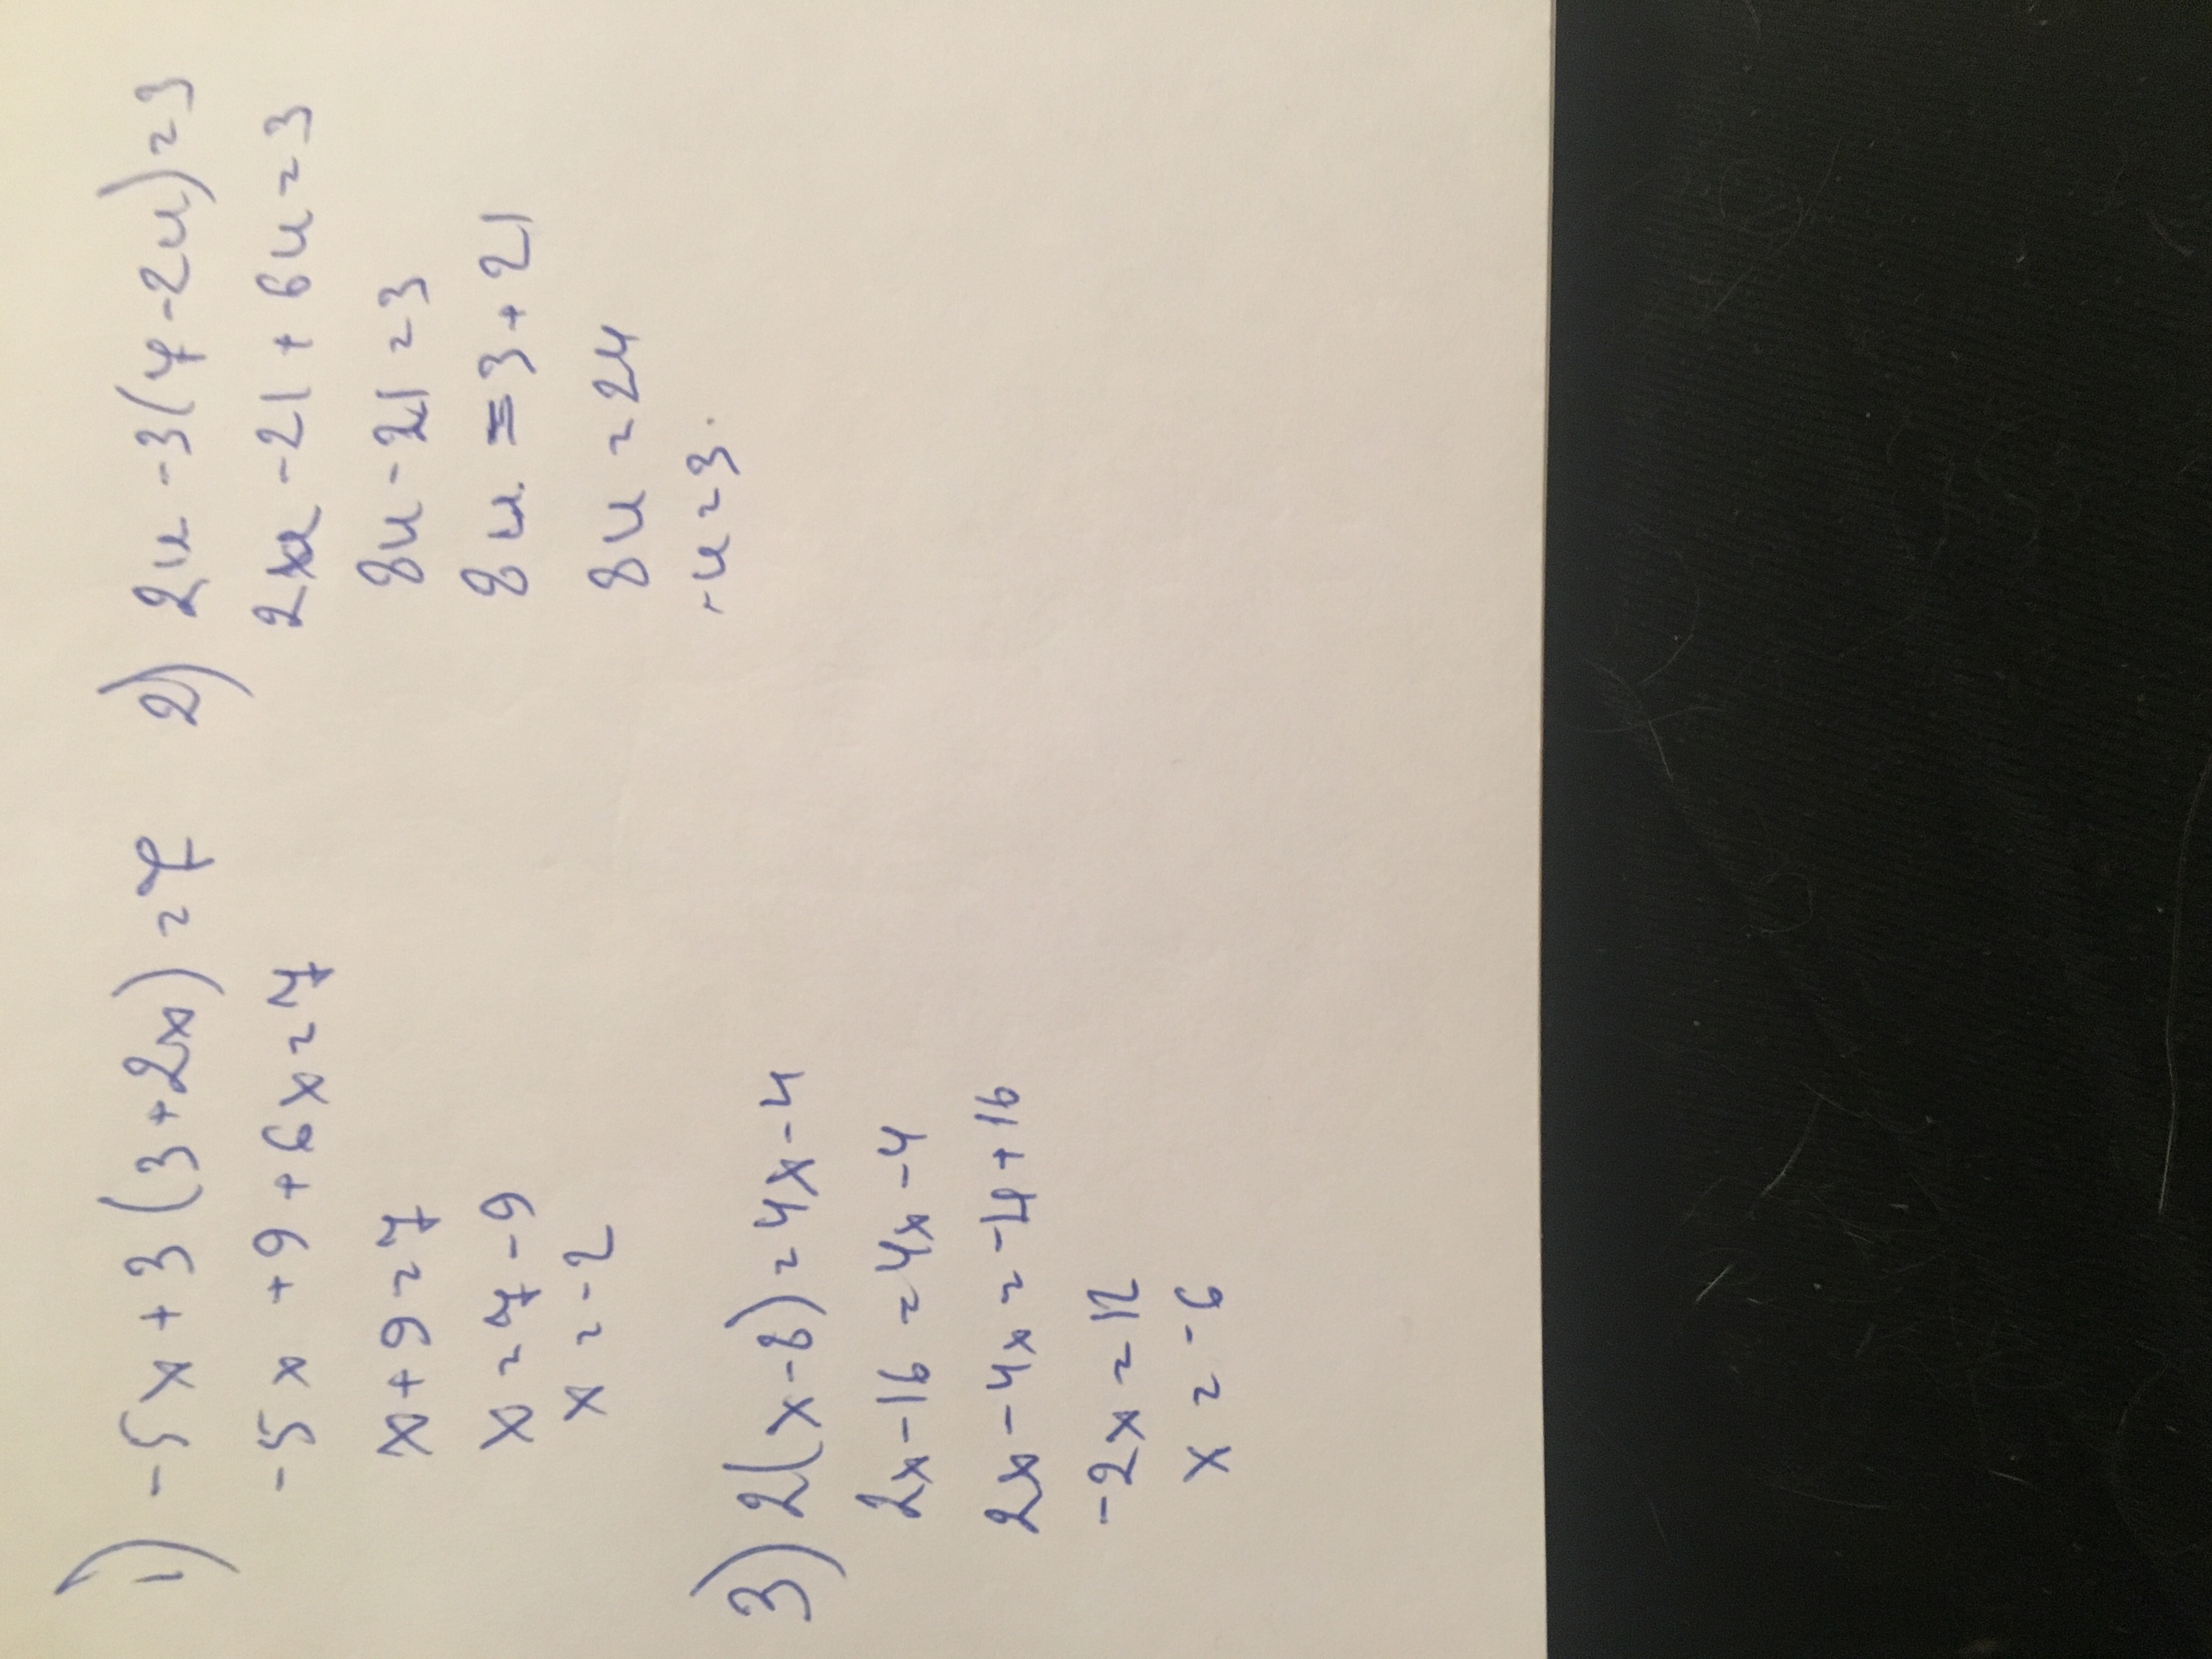 1) -5x + 3(3+2x) = 7
-5x + 9 + 6x = 7
x + 9 = 7
x = 7 - 9
x = -2
2) 2u - 3(7-2u) = 3
2u - 21 + 6u = 3
8u - 21 = 3
8u = 3 + 21
8u = 24
u = 3.
3) 2(x-8) = 4x - 4
2x - 16 = 4x - 4
2x - 4x = -4 + 16
-2x = 12
x = -6